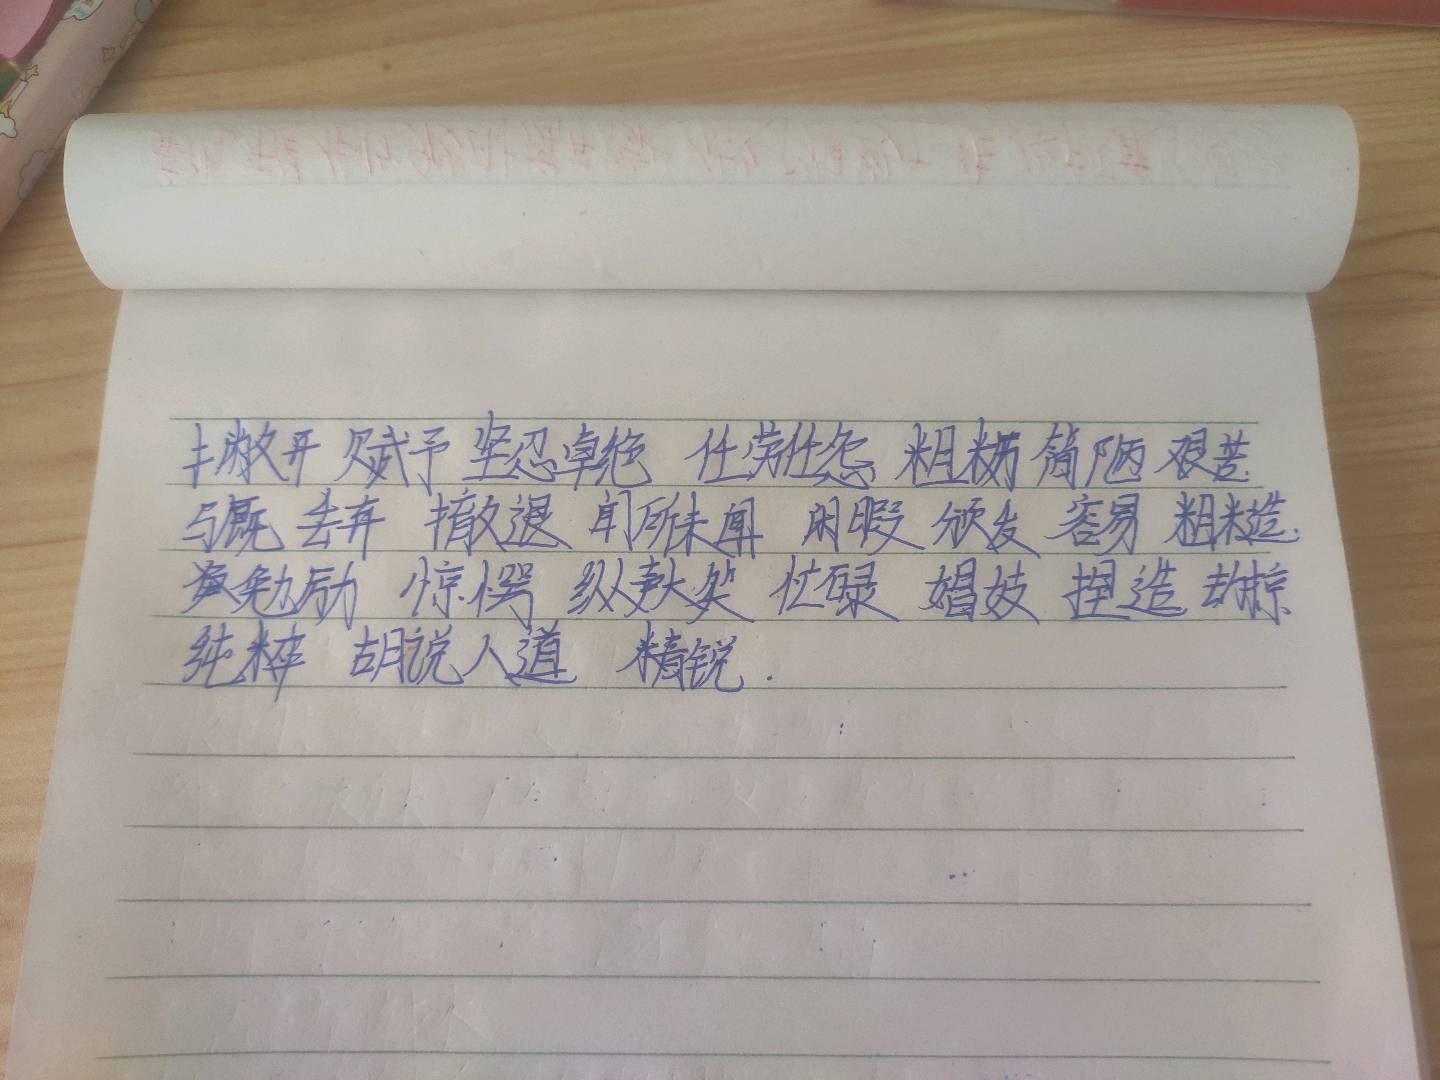 撇开 赋予 坚忍卓绝 任劳任怨 粗粝 简陋 艰苦
丢弃 撤退 闻所未闻 闲暇 颁发 容易 粗糙
勉励 惊愕 纵声大笑 忙碌 娼妓 捏造 劫掠
纯粹 胡说八道 精锐.